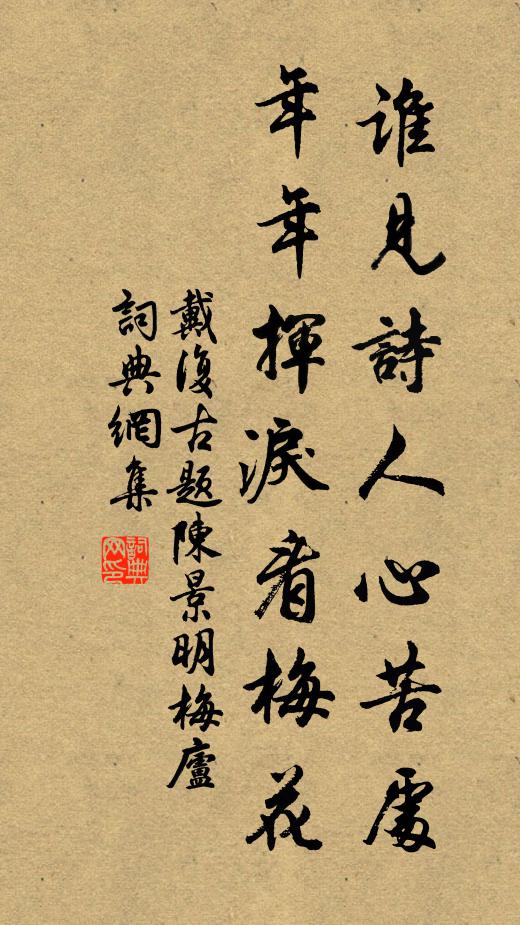 誰見詩人心苦處
年年揮淚看梅花
戴復古題陳景明梅廬
詞典網集
詞典网印